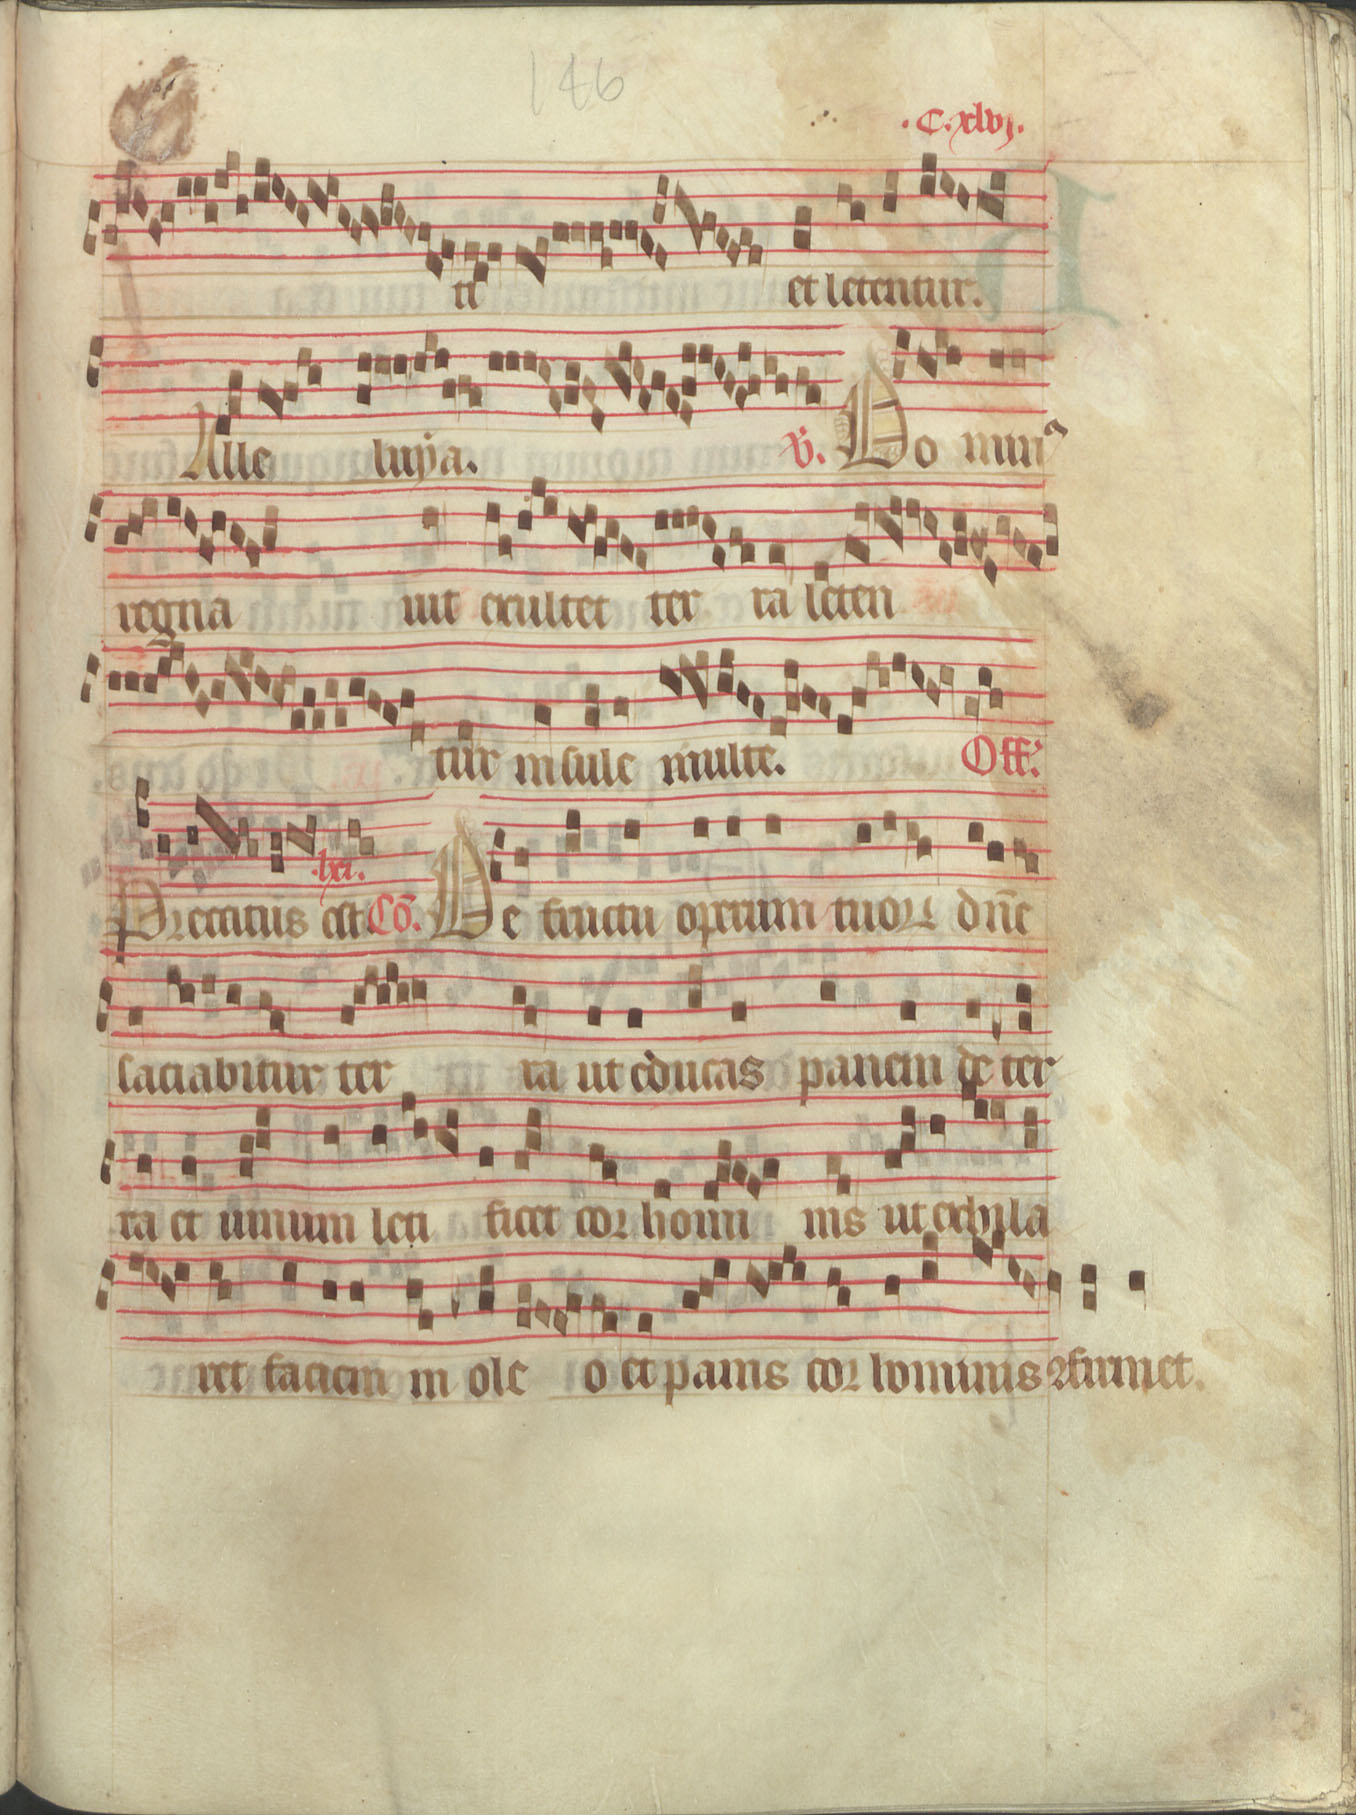 146
.C.xlvj.
ti et letentur.
Alle luya. V. Do min9
regna uit exultet ter ra leten
tur insule multe. Off.
.lxi.
Precatus est Cō. De fructu operum tuoꝝ dn̄e
saciabitur ter ra ut educas panem de ter
ra et uinum leti ficet cor homi nis ut exhila
ret faciem in ole o et panis cor hominis ꝯfirmet.